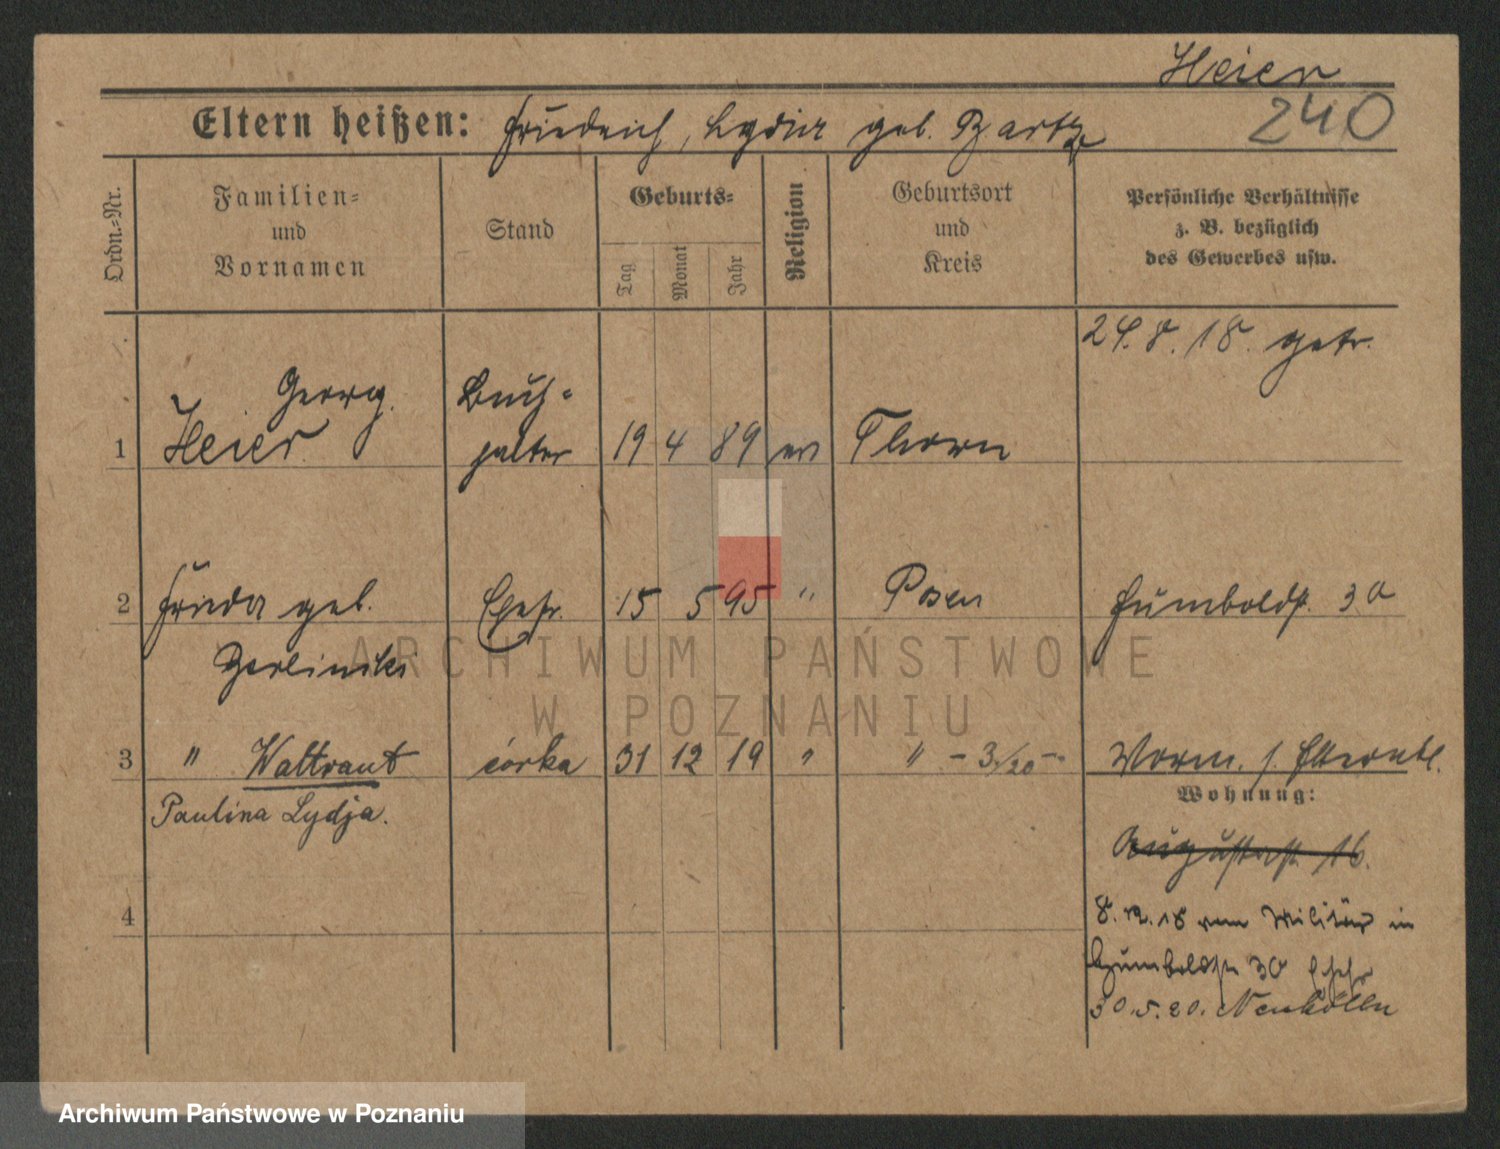 Heier
240
Eltern heißen: Friedrich, Lydia geb. Bartz
Ordn.=Nr.
Familien=
und
Vornamen
Stand
Geburts=
Tag
Monat
Jahr
Religion
Geburtsort
und
Kreis
Persönliche Verhältnisse
z. B. bezüglich
des Gewerbes usw.
24.8.18. getr.
Georg Buch=
1 Heier halter 19 4 89 ev Thorn
2 Frieda geb. Ehefr. 15 5 95 " Posen Humboldstr. 30
3 " Waltraut córka 31 12 19 " " – 3/20 – Worm. s. Elternbl.
Paulina Lydja.
Wohnung:
Augustastr. 16.
4
8.12.18 vom Militär in
Humboldstr 30 Ehefr
30.5.20. Neukölln
ARCHIWUM PAŃSTWOWE
W POZNANIU
Archiwum Państwowe w Poznaniu